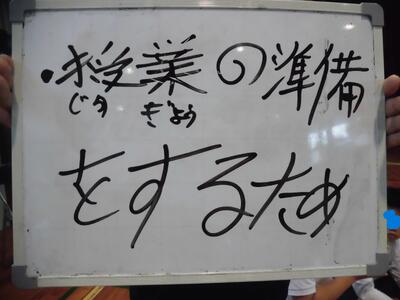 ・授業の準備
じゅ ぎょう
をするため